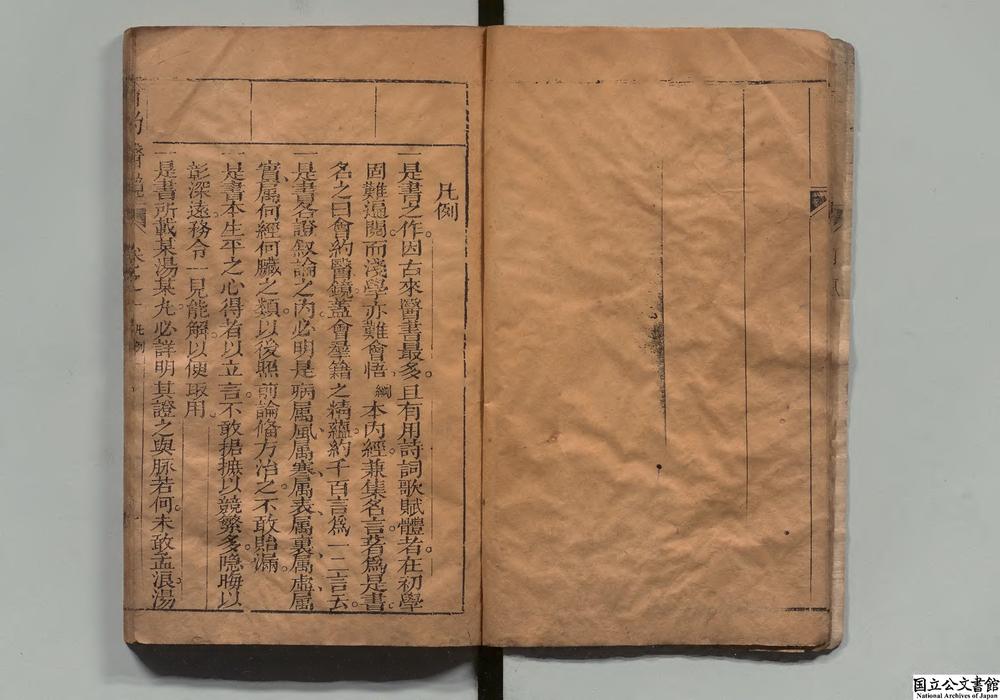 凡例
一是書之作因古來醫書最多且有用詩詞歌賦體者在初學
固難遍閱而淺學亦難會悟綱本內經兼集名言著爲是書
名之曰會約醫鏡蓋會羣籍之精蘊約千百言爲一二言云
一是書各證叙論之內必明是病属風属寒属表属裏属虛属
實属何經何臟之類以後照前論俻方治之不敢貽漏
一是書本生平之心得者以立言不敢捃摭以競繁多隐晦以
彰深遠務令一見能解以便取用
一是書所載某湯某丸必詳明其證之與脉若何未敢孟浪湯
約醫鏡 卷之一 凡例
国立公文書館
National Archives of Japan